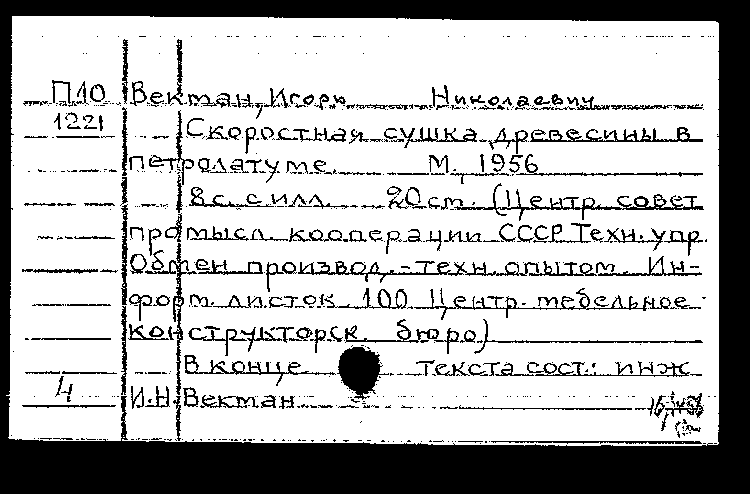 П10 Вектан, Игорь Николаевич
1221 Скоростная сушка древесины в
петролатуме. М., 1956
8 с. с илл. 20 см. (Центр. совет
промысл. кооперации СССР. Техн. упр.
Обмен производ.-техн. опытом. Ин-
форм. листок. 100 Центр. мебельное
конструкторск. бюро)
В конце текста сост.: инж
4 И.Н. Вектан